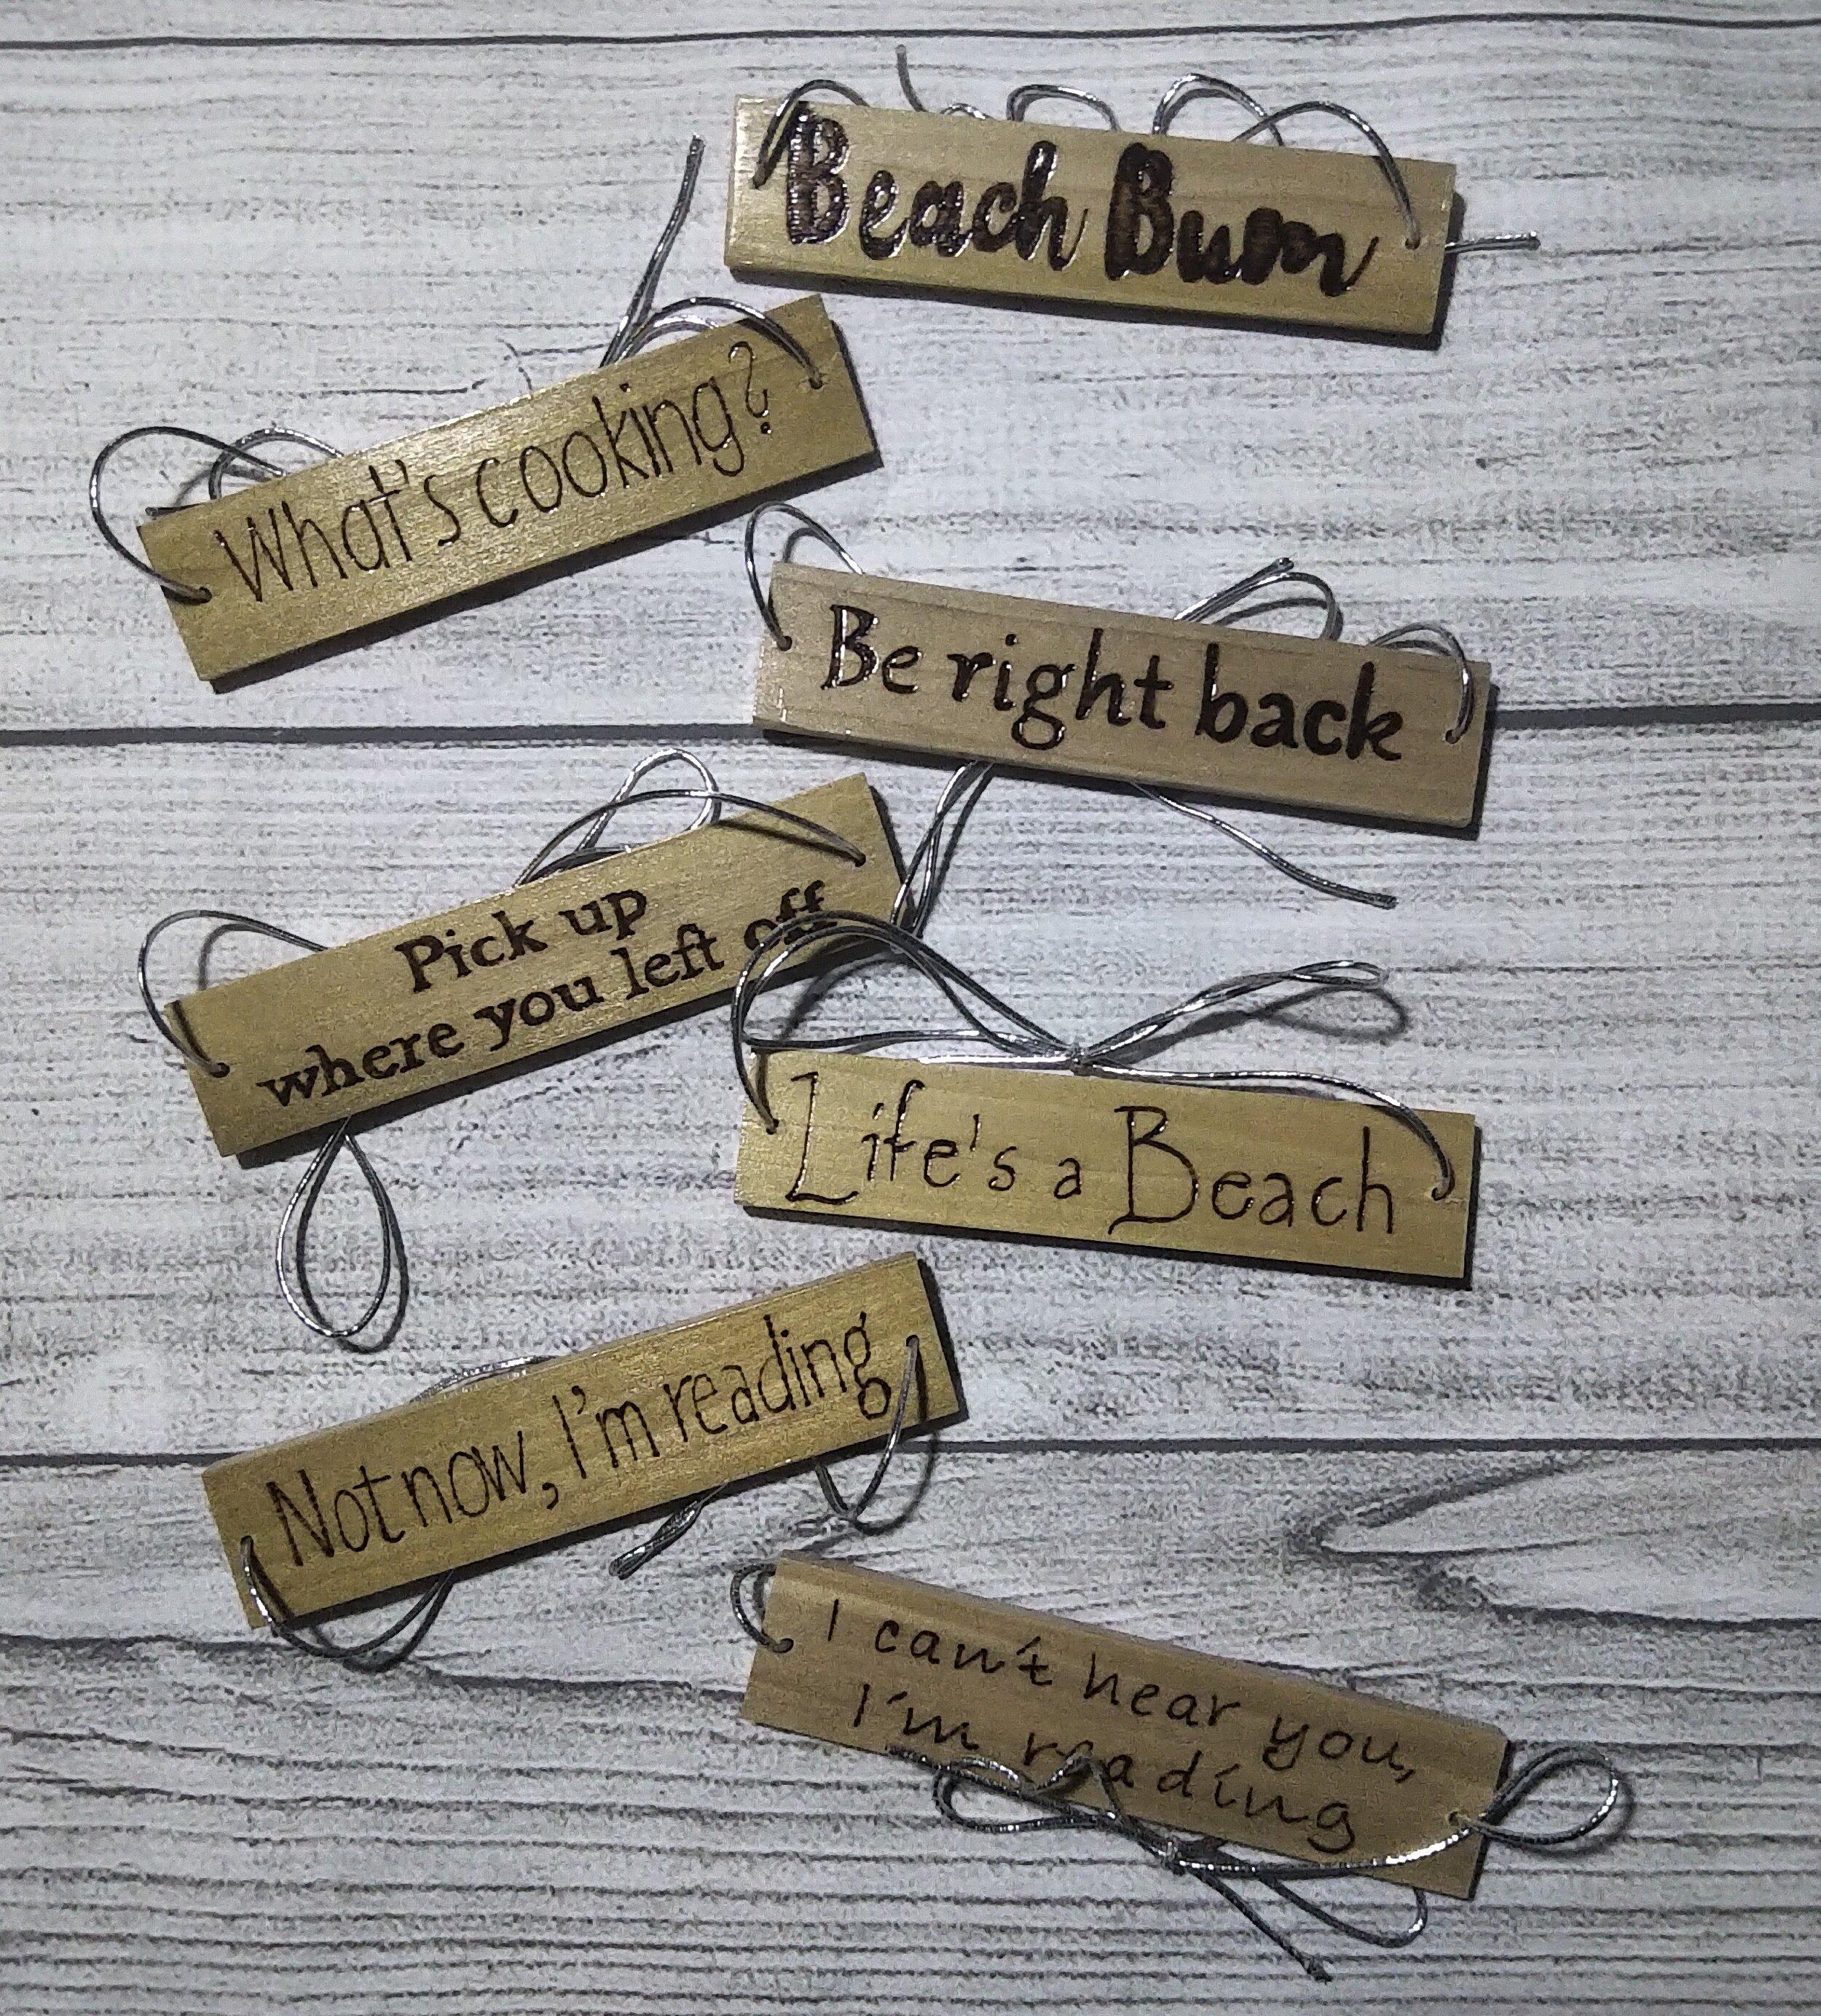 Beach Bum
What's cooking?
Be right back
Pick up
where you left off
Life's a Beach
Not now, I'm reading
I can't hear you,
I'm reading